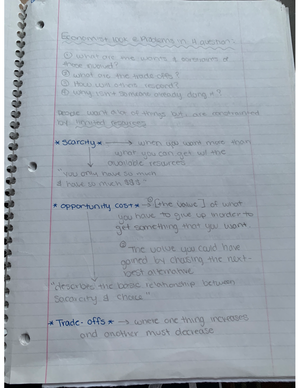 ① What are the wants & constraints of those involved?
② What are the trade offs?
③ How will others respond?
④ Why isn't someone already doing it?
People want a lot of things but are constrained
by limited resources
*scarcity* → when you want more than
what you can get w/ the
available resources
"you only have so much
& have so much $$$"
*opportunity cost* → ① [the value] of what
you have to give up in order to
get something that you want
② The value you could have
gained by chasing the next-
best alternative
"describes the basic relationship between
scarcity & choice"
*Trade-offs* → where one thing increases
and another must decrease